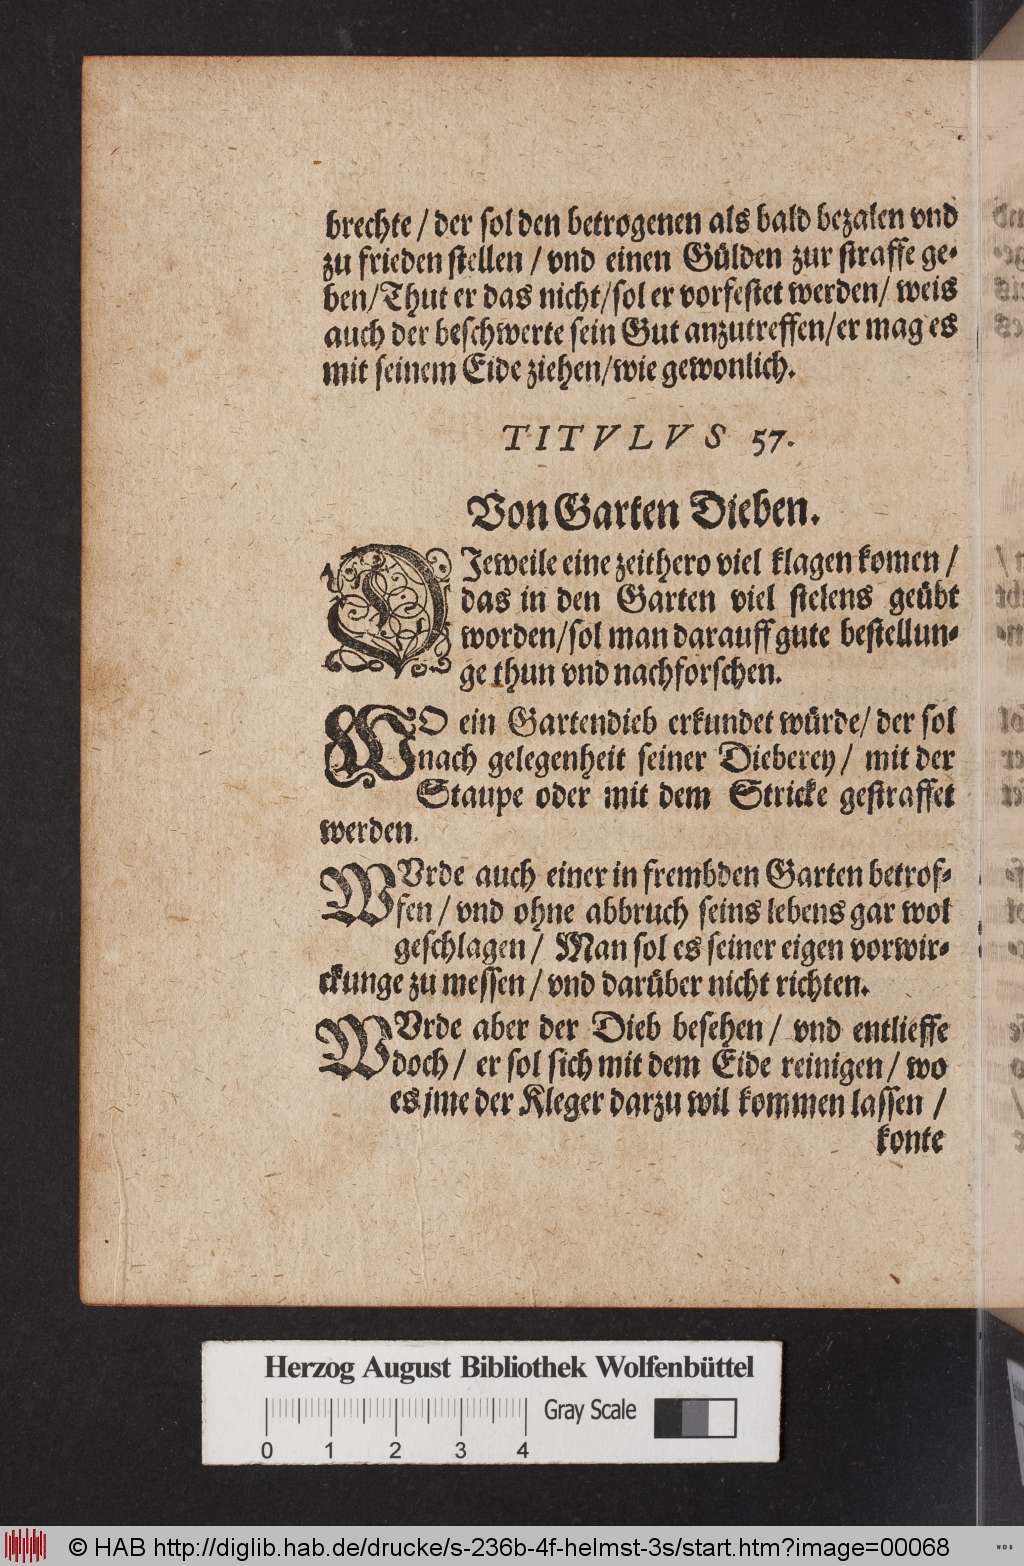 brechte / der sol den betrogenen als bald bezalen vnd
zu frieden stellen / vnd einen Gülden zur straffe ge-
ben/Thut er das nicht/sol er vorfestet werden/ weis
auch der beschwerte sein Gut anzutreffen/er mag es
mit seinem Eide ziehen/wie gewonlich.
TITVLVS 57.
Von Garten Dieben.
DJeweile eine zeithero viel klagen komen /
das in den Garten viel stelens geübt
worden/sol man darauff gute bestellun-
ge thun vnd nachforschen.
WO ein Gartendieb erkundet würde/ der sol
nach gelegenheit seiner Dieberey / mit der
Staupe oder mit dem Stricke gestraffet
werden.
WVrde auch einer in frembden Garten betrof-
fen / vnd ohne abbruch seins lebens gar wol
geschlagen / Man sol es seiner eigen vorwir-
ckunge zu messen / vnd darüber nicht richten.
WVrde aber der Dieb besehen / vnd entlieffe
doch / er sol sich mit dem Eide reinigen / wo
es jme der Kleger darzu wil kommen lassen /
konte
Herzog August Bibliothek Wolfenbüttel
Gray Scale
0 1 2 3 4
© HAB http://diglib.hab.de/drucke/s-236b-4f-helmst-3s/start.htm?image=00068